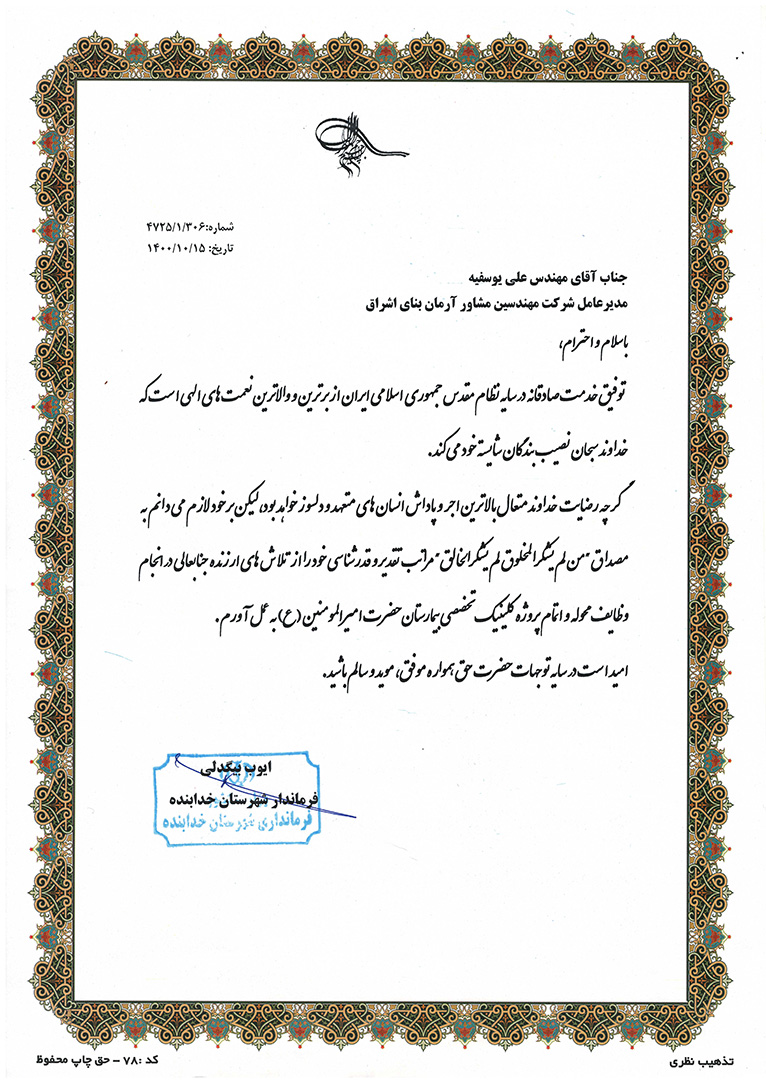 شماره:۴۷۲۵/۱/۳۰۶
تاریخ: ۱۴۰۰/۱۰/۱۵
جناب آقای مهندس علی یوسفیه
مدیرعامل شرکت مهندسین مشاور آرمان بنای اشراق
باسلام و احترام،
توفیق خدمت صادقانه در سایه نظام مقدس جمهوری اسلامی ایران از برترین و والاترین نعمت های الهی است که
خداوند سبحان نصیب بندگان شایسته خود می کند.
گرچه رضایت خداوند متعال بالاترین اجر و پاداش انسان های متعهد و دلسوز خواهد بود، لیکن بر خود لازم می دانم به
مصداق "من لم یشکر المخلوق لم یشکر الخالق" مراتب تقدیر و قدرشناسی خود را از تلاش های ارزنده جنابعالی در انجام
وظایف محوله و اتمام پروژه کلینیک تخصصی بیمارستان حضرت امیرالمومنین (ع) به عمل آورم.
امید است در سایه توجهات حضرت حق همواره موفق، موید و سالم باشید.
ایوب بیگدلی
فرماندار شهرستان خدابنده
فرمانداری شهرستان خدابنده
تذهیب نظری
کد :۷۸ – حق چاپ محفوظ